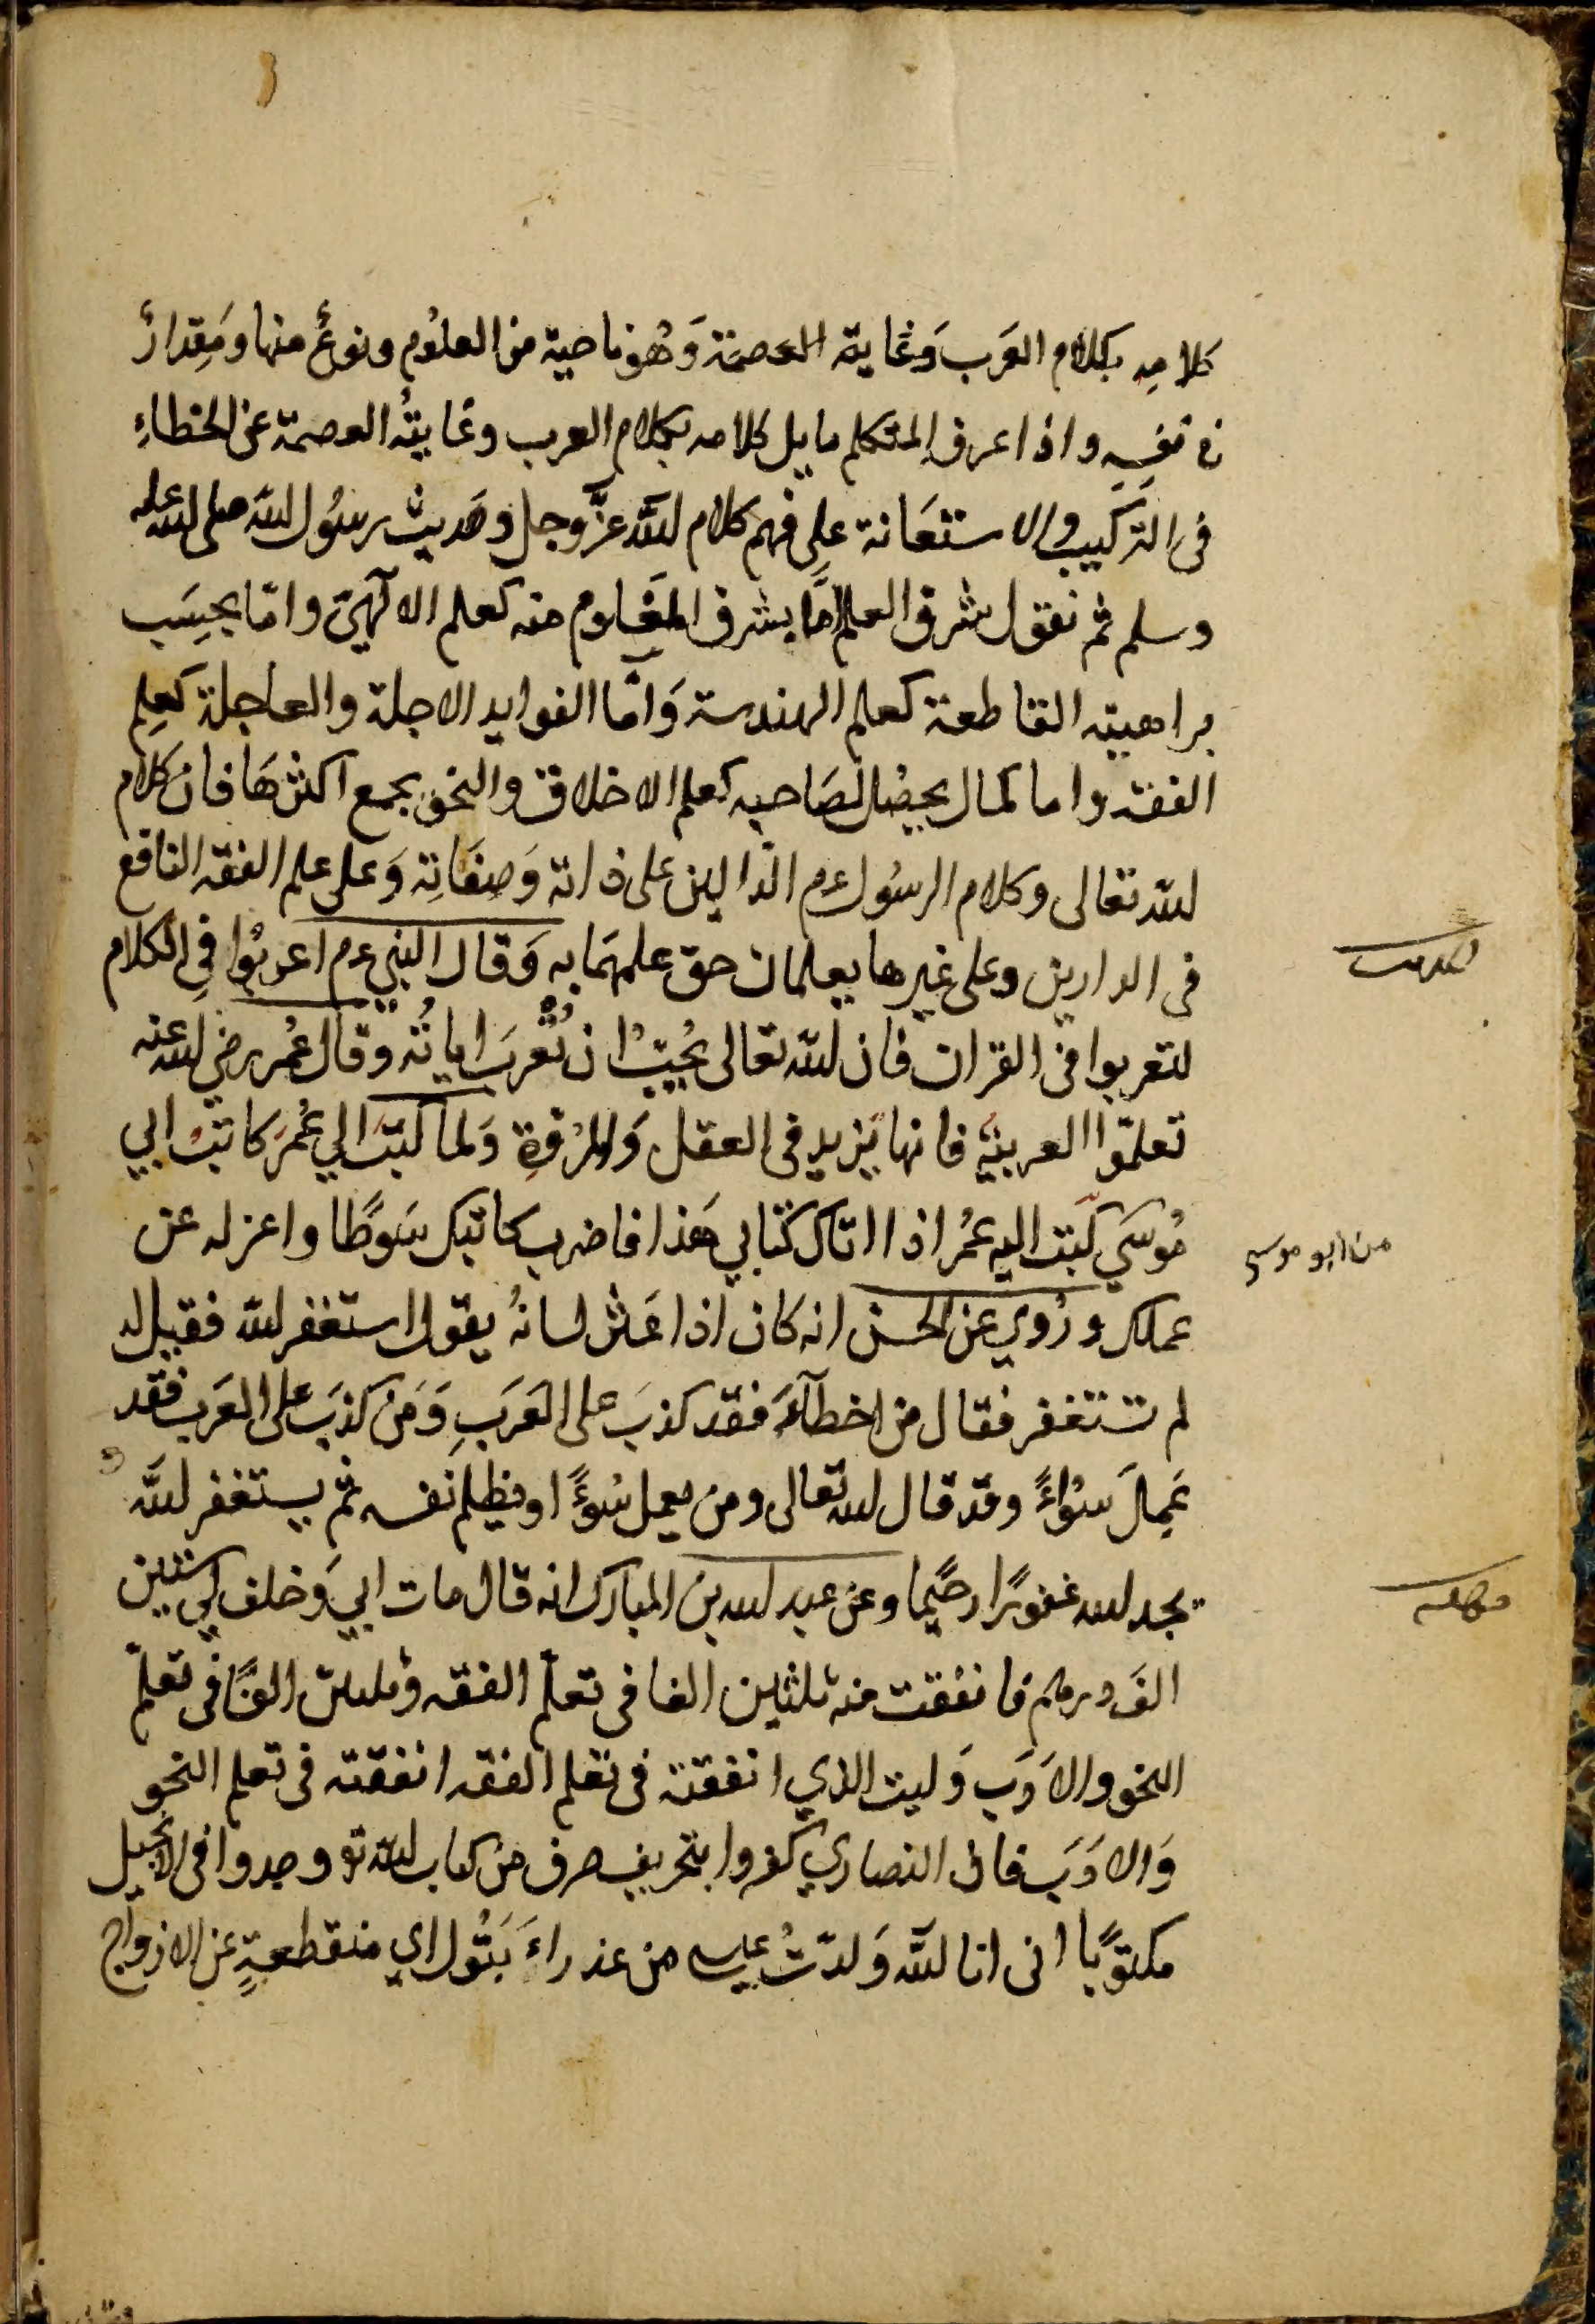 كلامِه بكلام العَرب وَغايته العصمة وَهُو ناحية من العلوُم ونوعٌ منها وَمِقدارٌ
واذا عرف المتكلم مايل كلامه بكلام العرب وغايتُه العصمة عن الخطاءِ
فى التركيب والاستعَانة على فهم كلام الله عزّ وجل وحَديث رسوُل الله صلى الله عليه
وسلم ثم نقول شرف العلم امّا بشرف المعَلوم منه كعلم الالٓهيّ وامّا بحَسَب
براهينه القاطعة كعلم الهندسة وَامّا الفوايد الاجلة والعاجلة كعِلم
الفقه واما لكمال يحصُل لصَاحبه كعلم الاخلاق والنحو يجمع اكثرهَا فان كلام
الله تعالى وكلام الرسوُل عم الدّالين على ذاته وَصِفَاتِه وَعلى علم الفقه النافع
فى الدارين وعلى غيرها يعلمان حق علمهمَا به وَقال النبي عم اعربُوا فِى الكلام
لتعربوا فى القران فان الله تعالى يُحِبُّ ان تُعْرَب اياتُه وقال عُمر رضي الله عنه
تعلمّوا العربيّه فانها يَزيد فى العقل وَالمرُوّةِ وَلما كَتبَ الي عُمَر كاتبُ ابي
مُوسَي كَتبَ اليه عمُر اذا اتاك كتابي هَذا فاضرب كاتبك سَوطًا واعزله عن
عملك ورُوي عن الحسن انه كان اذا عَثر لسانهُ يقول استغفر الله فقيل له
لم تستغفر فقال من اخطآءَ فقد كذبَ على العَرَبِ وَمَن كذبَ على العَرَب فقد
عَمِلَ سوُاءً وقد قال الله تعالى ومن يعمل سُوءً او يظلم نفسه ثم يستغفر الله
يجد الله غفوُرًا رحيًما وعن عبد الله بن المبارك انه قال مات ابي وَخلف لي ستين
الفَ درهم فانفقت منه ثلثين الفا فى تعلّم الفقه وثلثين الفًا فى تعلّم
النحو والادَب وَليت الذي انفقته فى تعلم الفقه انفقته فى تعلم النحو
وَالادَب فان النصاري كفروا بتحريف حرف من كتاب الله تع وجدوا فى الانجيل
مكتوبًا انى انا الله وَلّدتُ عيسى من عذراءَ بَتُول اي منقطعةٍ عن الازواج
حديث
من ابو موسى